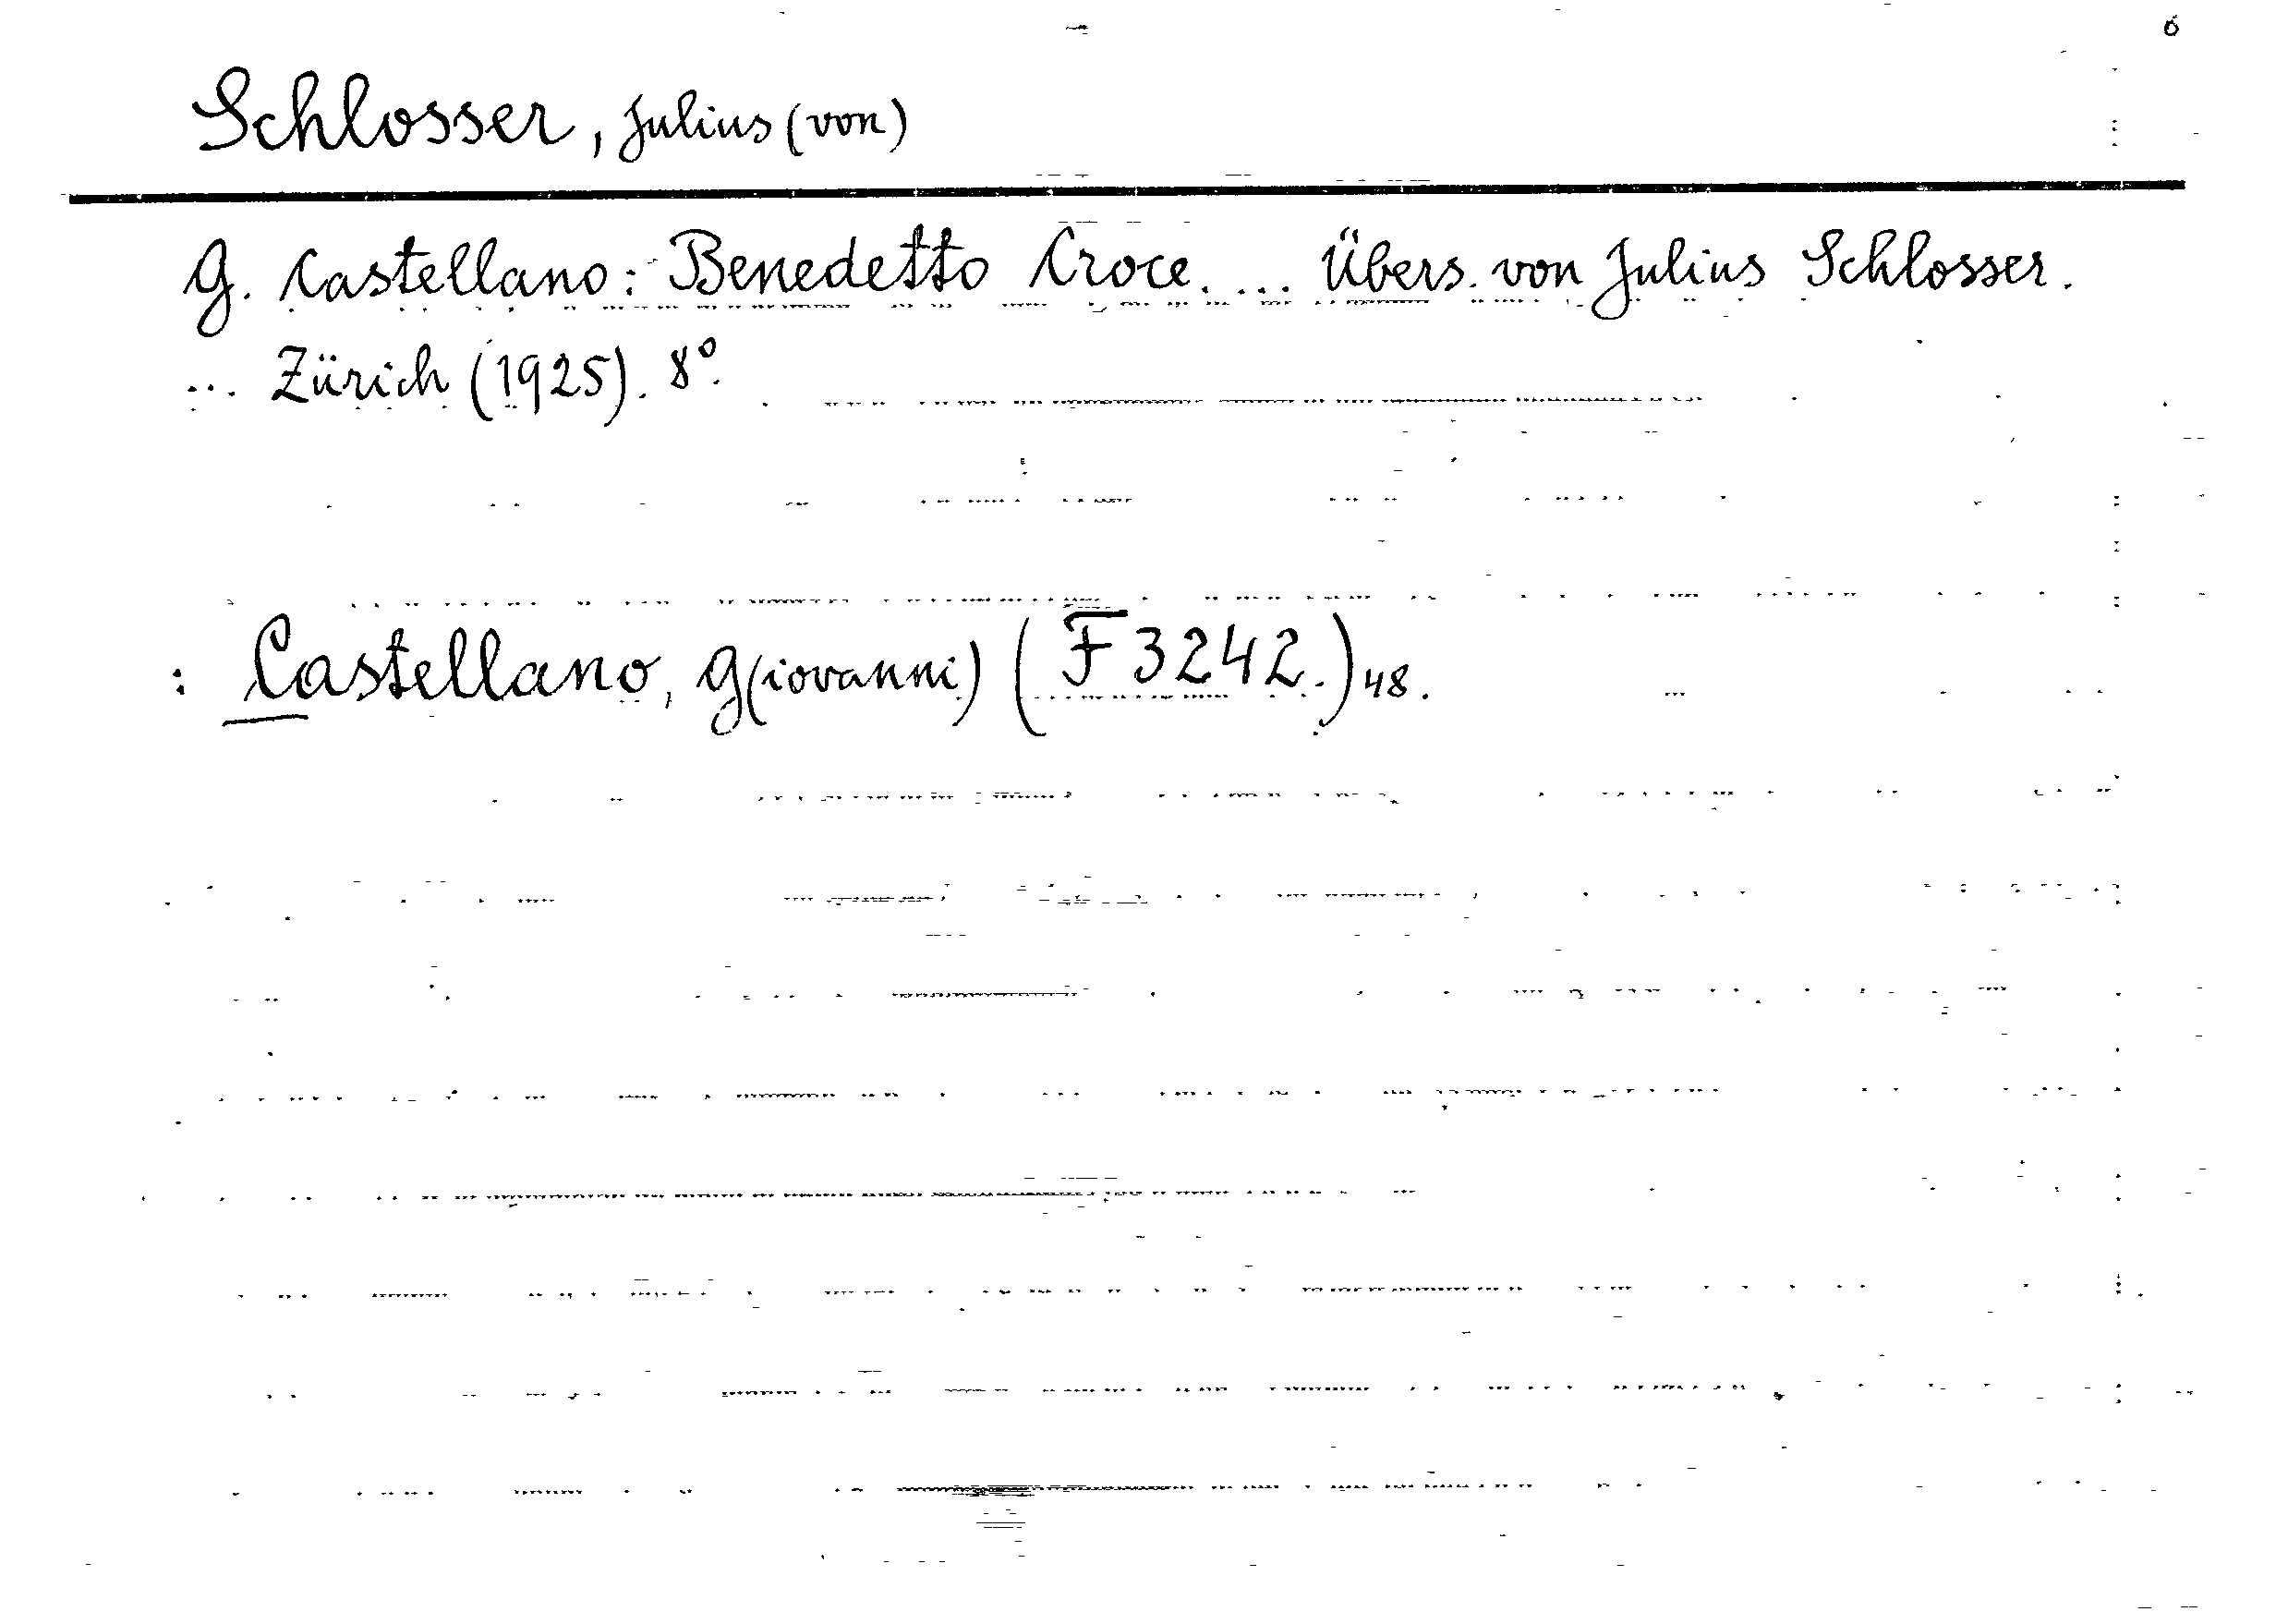 6
Schlosser, Julius (von)
G. Castellano: Benedetto Croce. ... Übers. von Julius Schlosser.
... Zürich (1925). 8°.
: Castellano, G(iovanni) (F 3242.) 48.